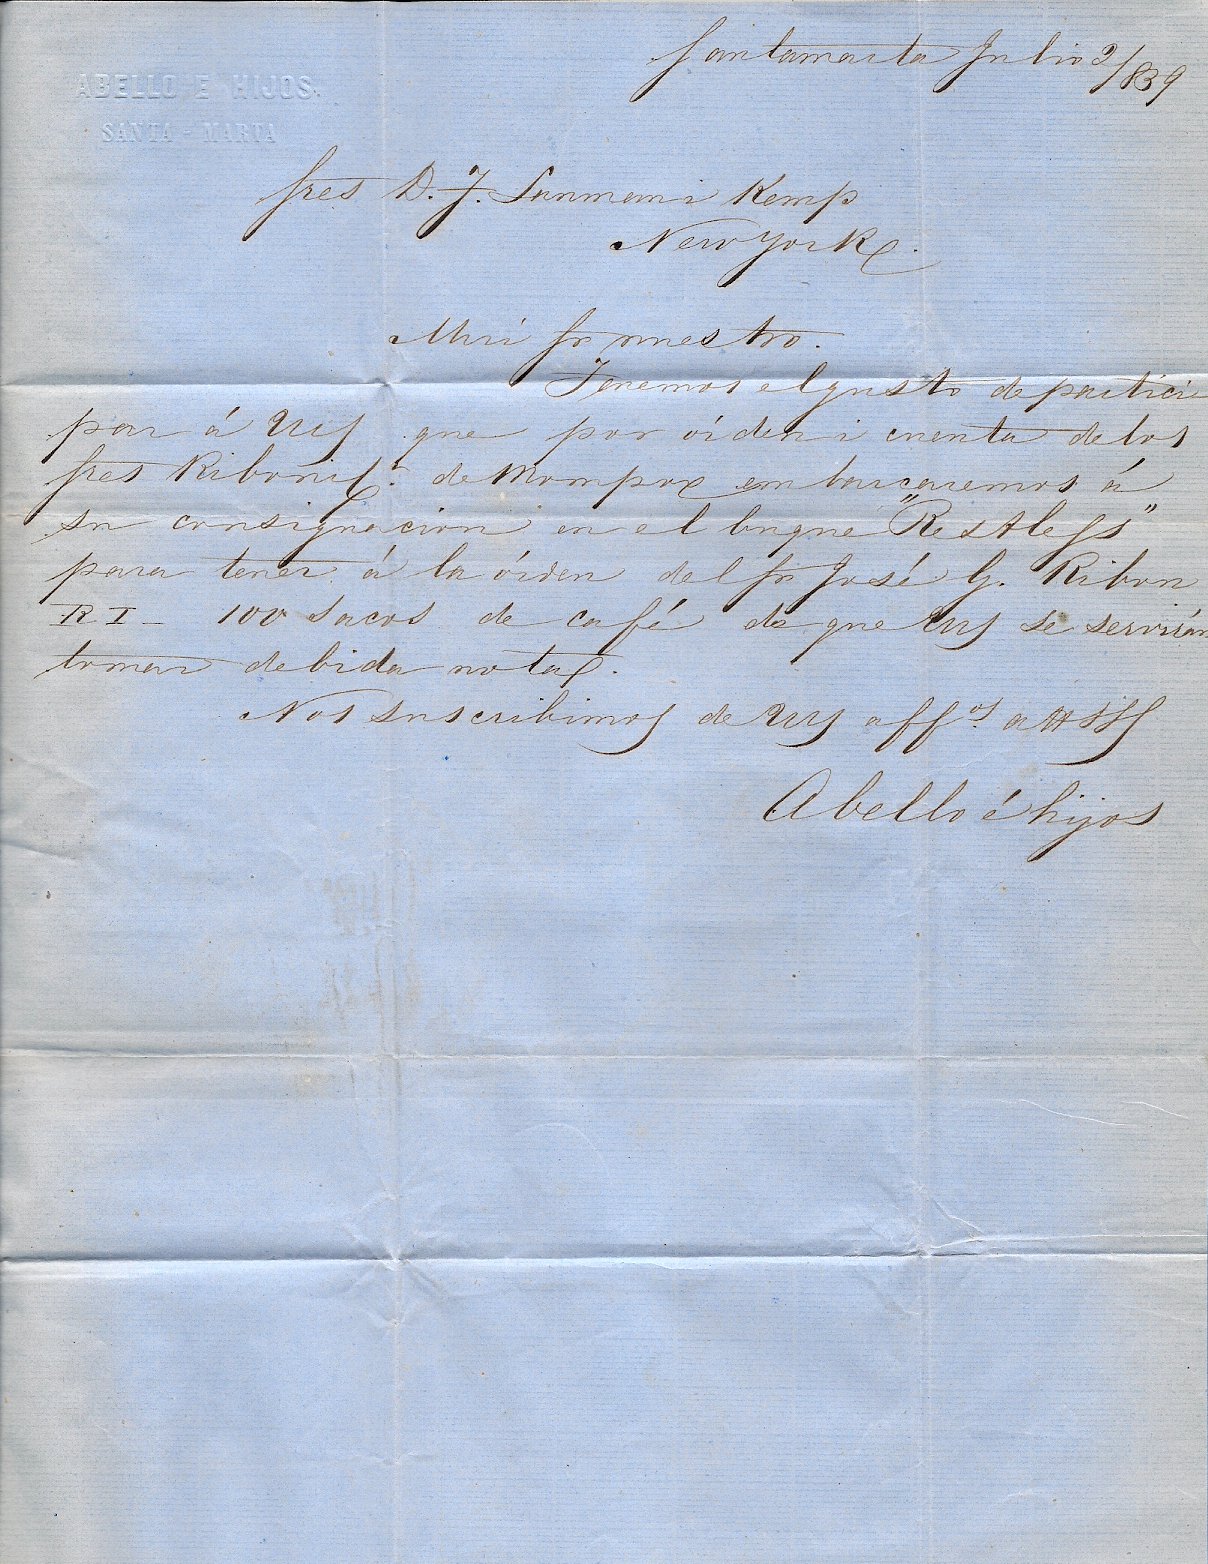 ABELLO E HIJOS.
SANTA-MARTA
Santamarta Julio 9/839
Sres D. J. Lanman i Kemp
New York.
Mui Sr nuestro.
Tenemos el gusto de partici
par á UUS que por orden i cuenta de los
Sres Ribon i de Mompox embarcaremos á
su consignacion en el buque "Restless"
para tener á la órden del Sr José G. Ribon
R I - 100 sacos de café de que UUS se servirán
tomar debida nota.
Nos suscribimos de UUS affos att SS
Abello é hijos